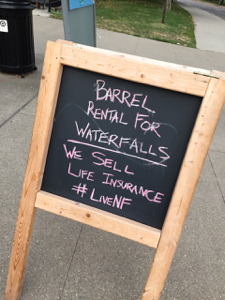 BARREL
RENTAL FOR
WATERFALLS
WE SELL
LIFE INSURANCE
#LIVENF